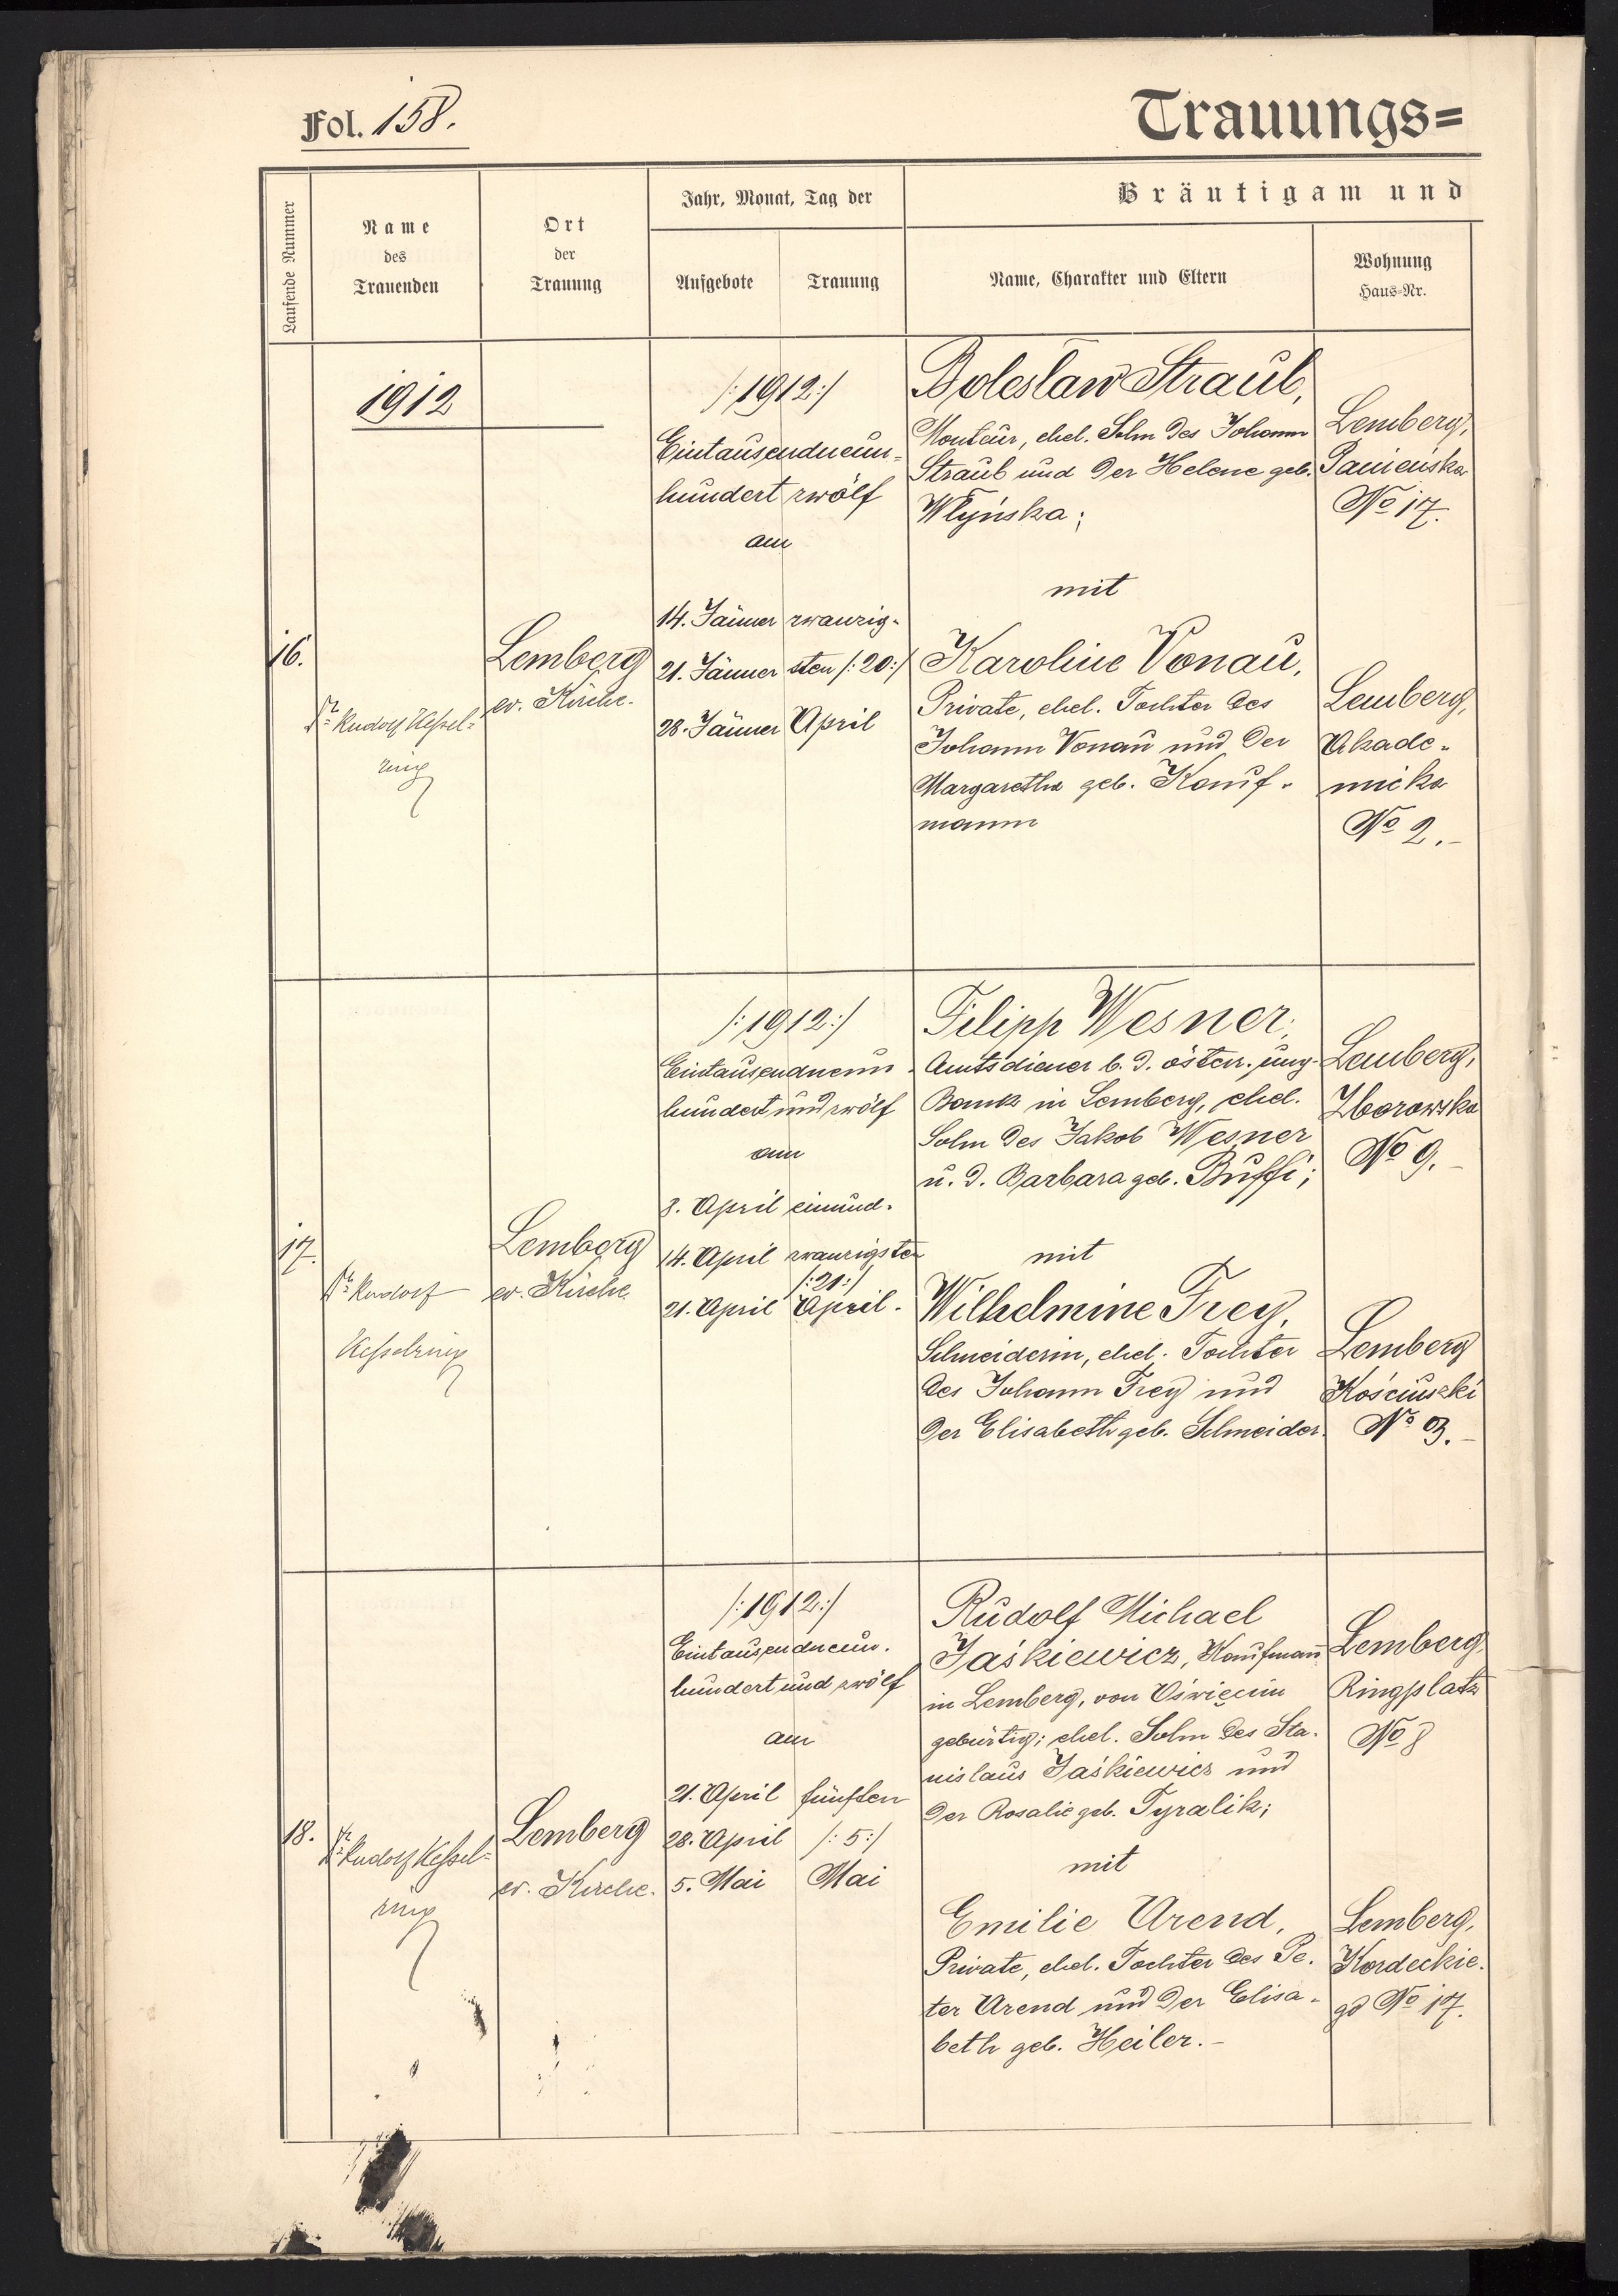 Fol. 158.
Trauungs=
Laufende Nummer
Name
des
Trauenden
Ort
der
Trauung
Jahr, Monat, Tag der
Aufgebote
Trauung
Bräutigam und
Name, Charakter und Eltern
Wohnung
Haus=Nr.
1912
16.
Rudolf Kessel=
ring
Lemberg
ev. Kirche.
/:1912:/
Eintausendneun=
hundert zwölf
am
14. Jänner zwanzig-
21. Jänner sten /:20:/
28. Jänner April
Boleslaw Straub,
Monteur, ehel. Sohn des Johann
Straub und der Helene geb.
Włyńska;
mit
Karoline Vonau,
Private, ehel. Tochter des
Johann Vonau und der
Margaretha geb. Kauf-
mann
Lemberg,
Panieńska
No 17.
Lemberg,
Akade-
micka
No 2.-
17.
Rudolf
Kesselring
Lemberg
ev. Kirche
/:1912:/
Eintausendneun-
hundert und zwölf
am
8. April einund-
14. April zwanzigsten
/:21:/
21. April April.
Filipp Wesner,
Amtsdiener b. d. österr. ung.
Bank in Lemberg, ehel.
Sohn des Jakob Wesner
u. d. Barbara geb. Buffi;
mit
Wilhelmine Frey,
Schneiderin, ehel. Tochter
des Johann Frey und
der Elisabeth geb. Schneider.
Lemberg,
Zborowska
No 9.-
Lemberg
Kościuszki
No 3.-
18.
Rudolf Kessel=
ring
Lemberg
ev. Kirche.
/:1912:/
Eintausendneun-
hundert und zwölf
am
21. April fünften
28. April /:5:/
5. Mai Mai
Rudolf Michael
Jaśkiewicz, Kaufmann
in Lemberg, von Oświęcim
gebürtig; ehel. Sohn des Sta-
nislaus Jaśkiewicz und
der Rosalie geb. Tyralik;
mit
Emilie Arend,
Private, ehel. Tochter des Pe-
ter Arend und der Elisa-
beth geb. Heiler.-
Lemberg,
Ringplatz
No 8
Lemberg,
Kordeckie-
go No 17.